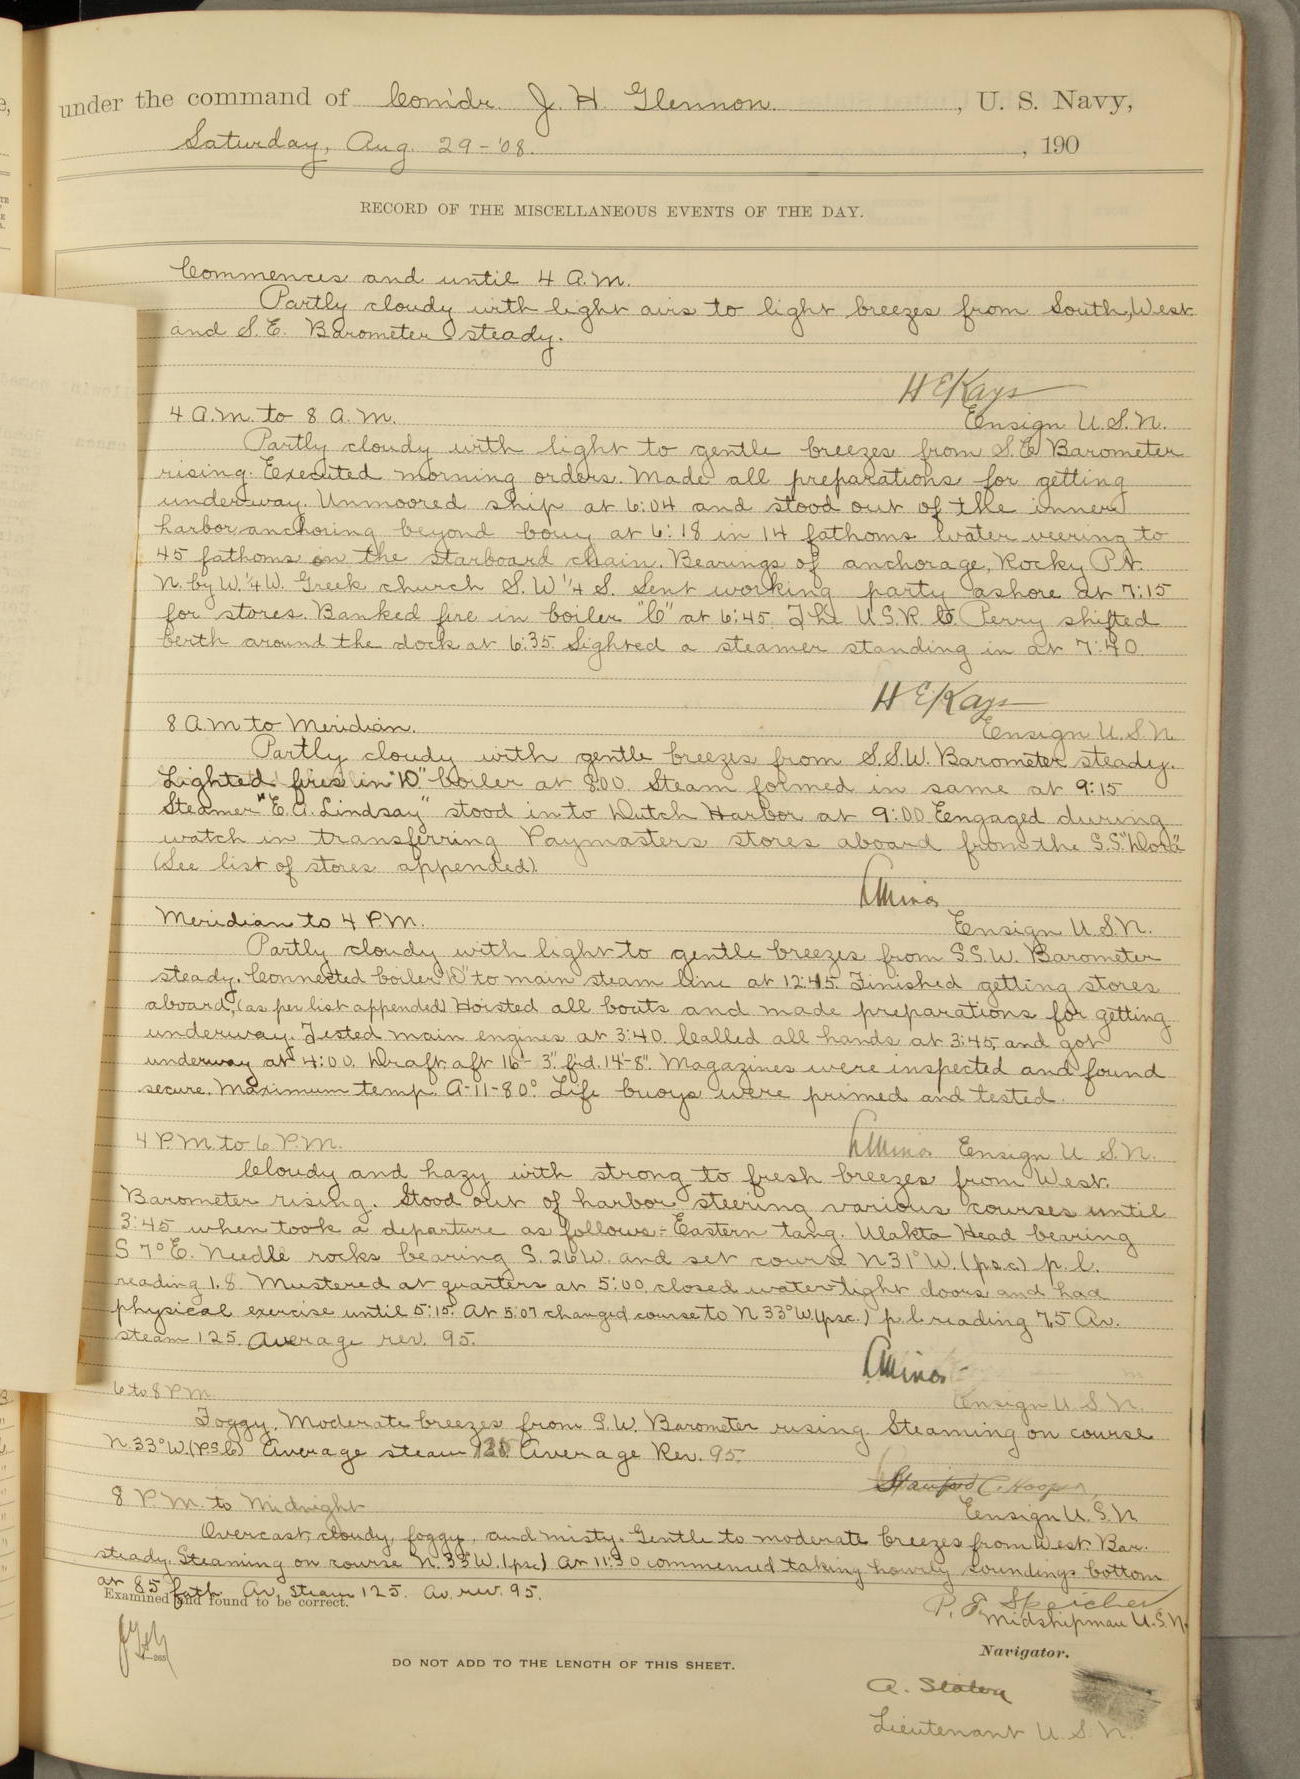 under the command of Comdr. J. H. Glennon, U. S. Navy,
Saturday, Aug. 29-'08., 190
RECORD OF THE MISCELLANEOUS EVENTS OF THE DAY.
Commences and until 4 A.M.
Partly cloudy with light airs to light breezes from South, West
and S.E. Barometer steady.
H E Kays
4 A.M. to 8 A.M.
Ensign U.S.N.
Partly cloudy with light to gentle breezes from S.E. Barometer
rising. Executed morning orders. Made all preparations for getting
underway. Unmoored ship at 6:04 and stood out of the inner
harbor anchoring beyond bouy at 6:18 in 14 fathoms water veering to
45 fathoms on the starboard chain. Bearings of anchorage, Rocky Pt.
N. by W. 1/4 W. Greek church S.W 1/4 S. Sent working party ashore at 7:15
for stores. Banked fire in boiler "C" at 6:45. The U.S.R.C. Perry shifted
berth around the dock at 6:35. Sighted a steamer standing in at 7:40
H E Kays
8 A.M to Meridian.
Ensign U.S.N
Partly cloudy with gentle breezes from S.S.W. Barometer steady.
Lighted fires in "D" boiler at 8:00 Steam formed in same at 9:15
Steamer "E. A. Lindsay" stood in to Dutch Harbor at 9:00 Engaged during
watch in transferring Paymasters stores aboard from the S.S. "Dora"
(See list of stores appended).
Meridian to 4 P.M.
Ensign U.S.N.
Partly cloudy with light to gentle breezes from S.S.W. Barometer
steady. Connected boiler "D" to main steam line at 12:45. Finished getting stores
aboard, (as per list appended) Hoisted all boats and made preparations for getting
underway. Tested main engines at 3:40. Called all hands at 3:45, and got
underway at 4:00. Draft aft 16'-3". f'd. 14'-8". Magazines were inspected and found
secure. Maximum temp A-11-80°. Life buoys were primed and tested.
4 P.M. to 6 P.M.
Ensign U S.N.
Cloudy and hazy with strong to fresh breezes from West.
Barometer rising. Stood out of harbor steering various courses until
3:45 when took a departure as follows:- Eastern tang. Ulakta Head bearing
S 7° E. Needle rocks bearing S. 26 W. and set course N 31° W. (p.s.c.) p. l.
reading 1.8. Mustered at quarters at 5:00, closed water-tight doors and had
physical exercise until 5:15. At 5:07 changed course to N 33° W. (psc.) p. l. reading 7.5 Av.
steam 125. Average rev. 95.
6 to 8 P.M.
Ensign U.S.N.
Foggy. Moderate breezes from S.W. Barometer rising. Steaming on course
N. 33° W. (P.S.C.) Average steam 125. Average Rev. 95.
Stanford C. Hooper,
8 P.M. to Midnight
Ensign U.S.N
Overcast, cloudy, foggy, and misty. Gentle to moderate breezes from West. Bar.
steady. Steaming on course N. 33° W. (psc) At 11:30 commenced taking hourly soundings bottom
at 85 fath. Av. steam 125. Av. rev. 95.
Examined and found to be correct.
P. F. Speicher
Midshipman U.S.N.
Navigator.
DO NOT ADD TO THE LENGTH OF THIS SHEET.
Lieutenant U.S.N.